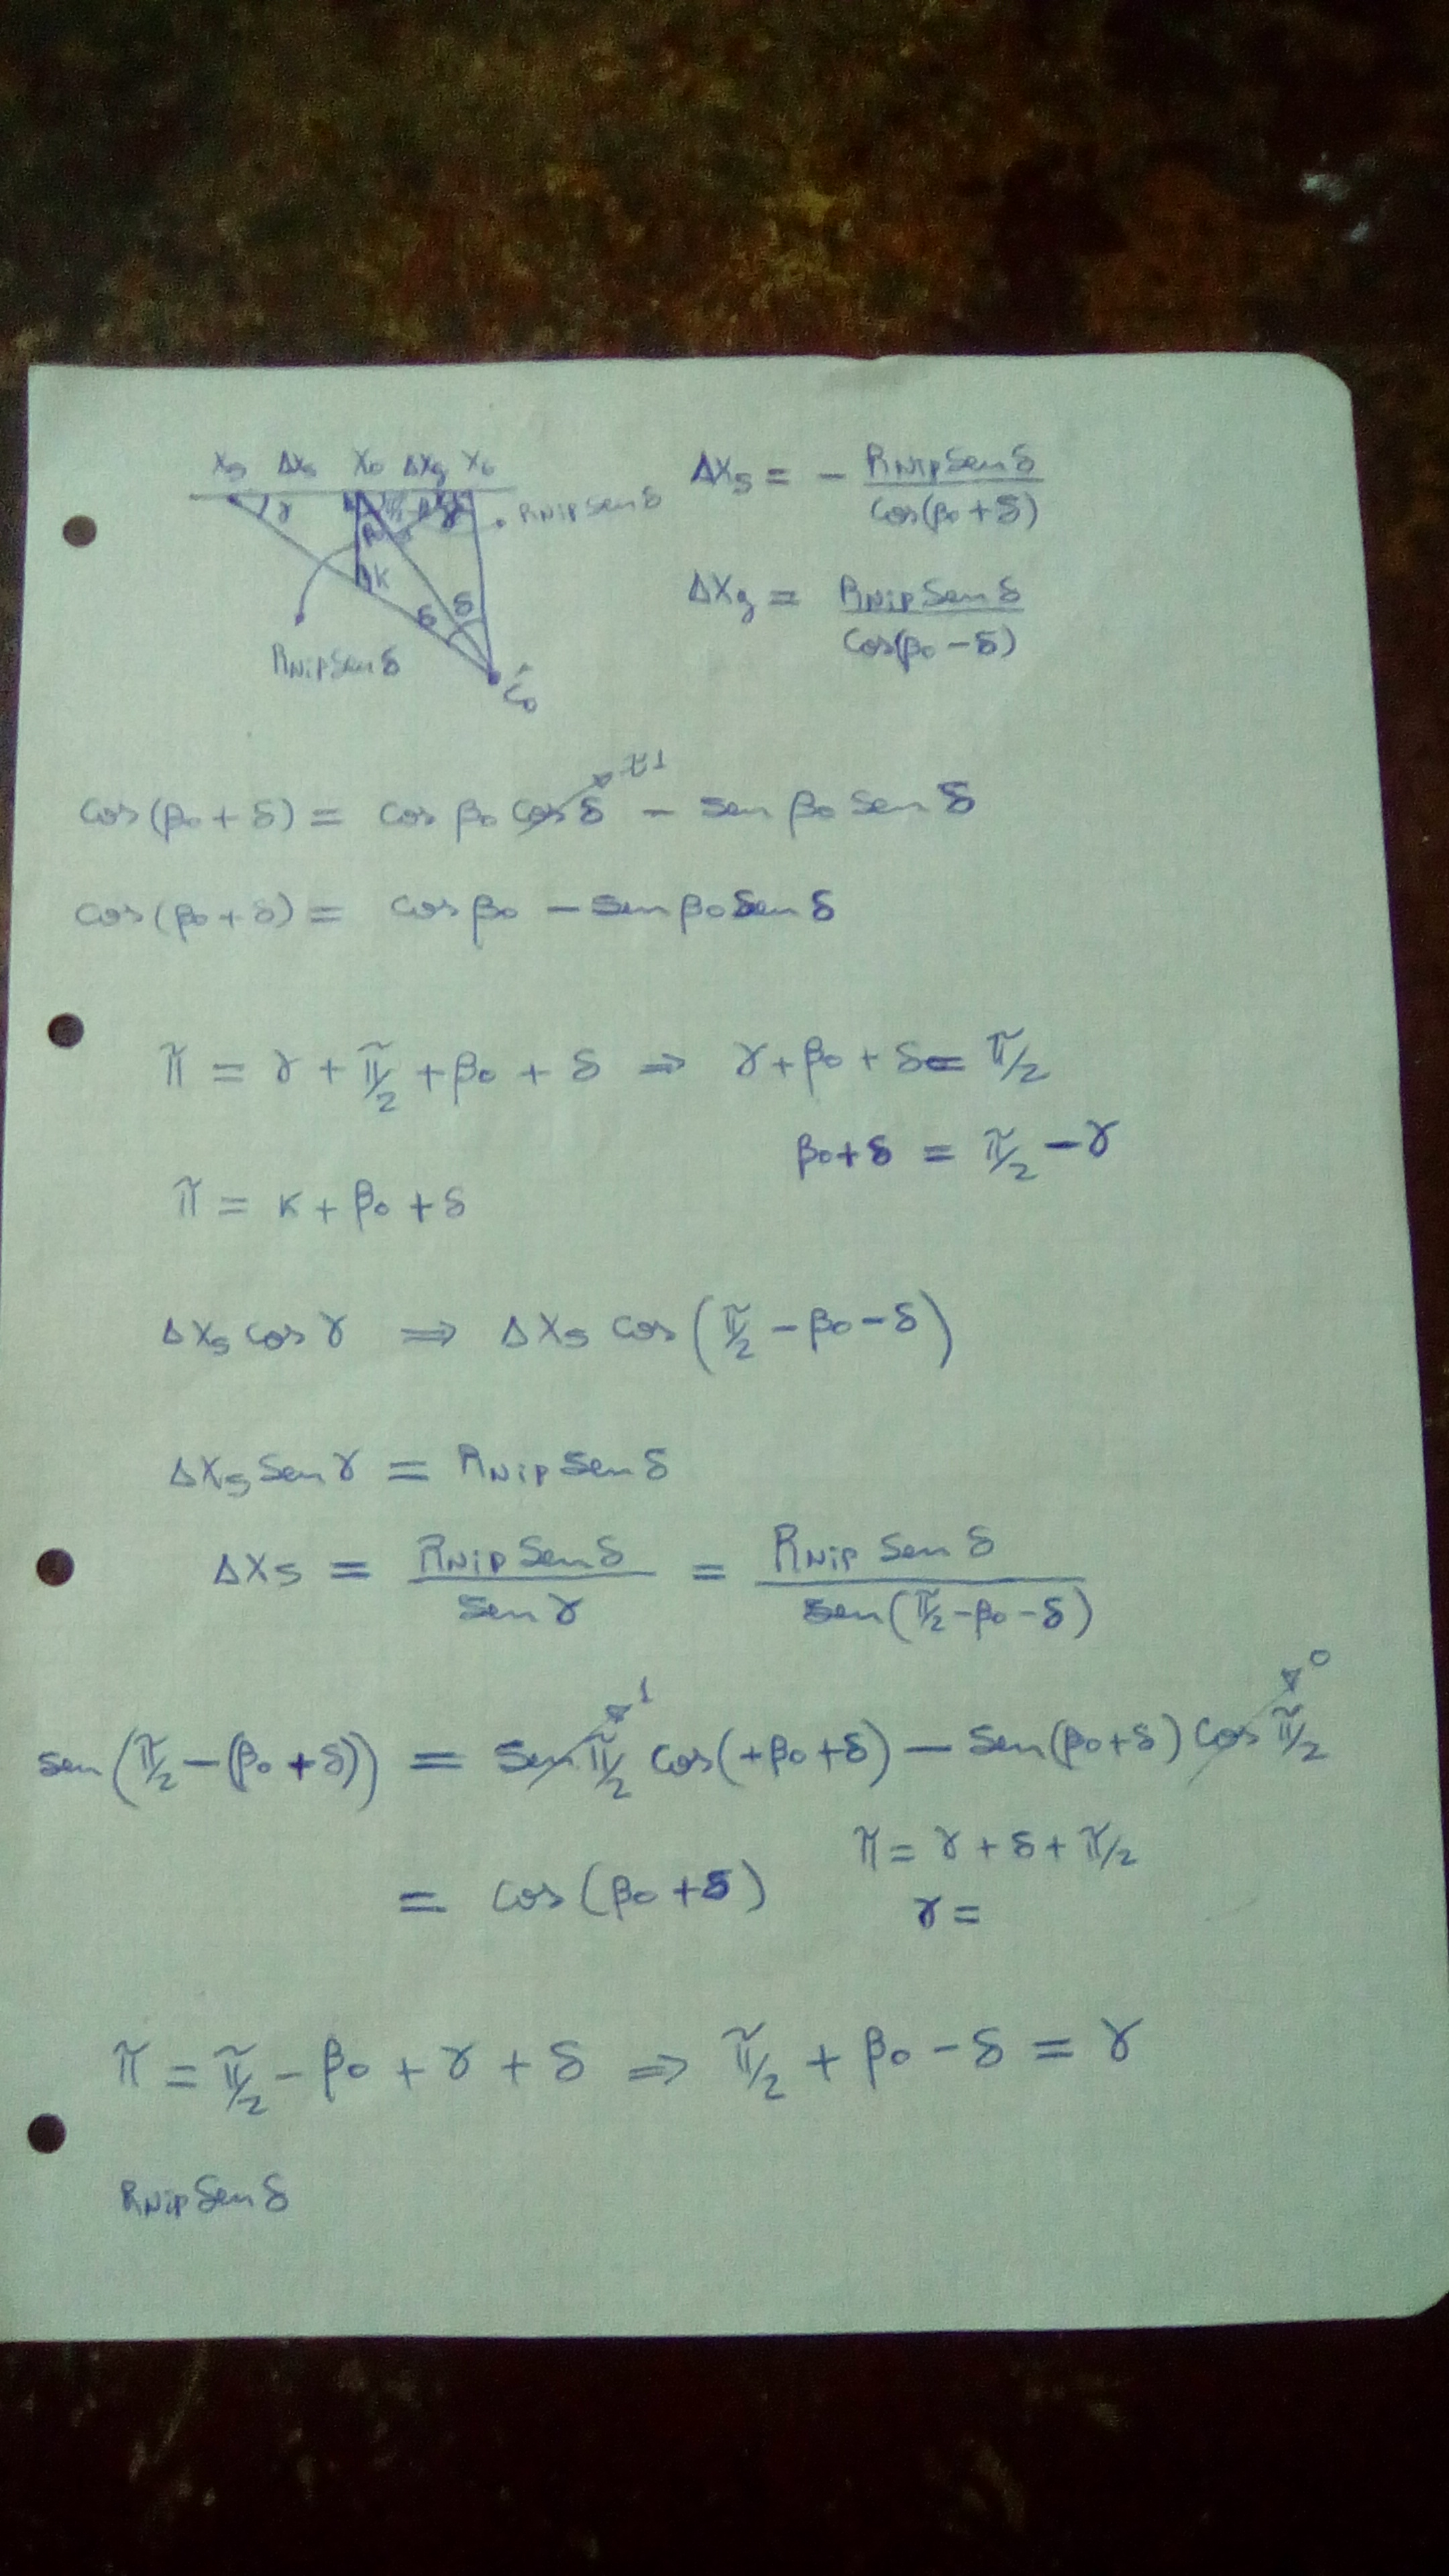 x₅ Δx₅ x₀ Δxg x₆
γ δ RNIP sen δ
K
δ δ
RNIP sen δ
i₀
Δx₅ = − RNIP sen δ / cos(β₀ + δ)
Δxg = RNIP sen δ / cos(β₀ − δ)
cos(β₀ + δ) = cos β₀ cos δ − sen β₀ sen δ
≈1
cos(β₀ + δ) = cos β₀ − sen β₀ sen δ
π = γ + π/2 + β₀ + δ ⇒ γ + β₀ + δ = π/2
β₀ + δ = π/2 − γ
π = K + β₀ + δ
Δx₅ cos γ ⇒ Δx₅ cos(π/2 − β₀ − δ)
Δx₅ sen γ = RNIP sen δ
Δx₅ = RNIP sen δ / sen γ = RNIP sen δ / sen(π/2 − β₀ − δ)
1 0
sen(π/2 − (β₀ + δ)) = sen π/2 cos(+β₀ + δ) − sen(β₀ + δ) cos π/2
π = γ + δ + π/2
= cos(β₀ + δ)
γ =
π = π/2 − β₀ + γ + δ ⇒ π/2 + β₀ − δ = γ
RNIP sen δ